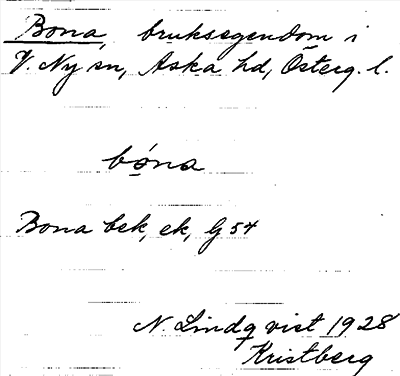 Bona, bruksegendom i
V. Ny sn, Aska hd, Österg. l.
bóna
Bona bek, ek, G 54
N. Lindqvist 1928
Kristberg